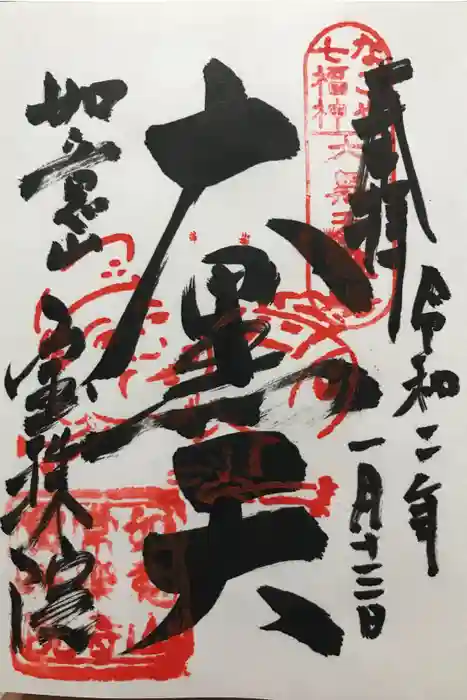 奉拝
令和二年
一月十三日
七福神
大黒天
大黒天
如意山
宝珠院